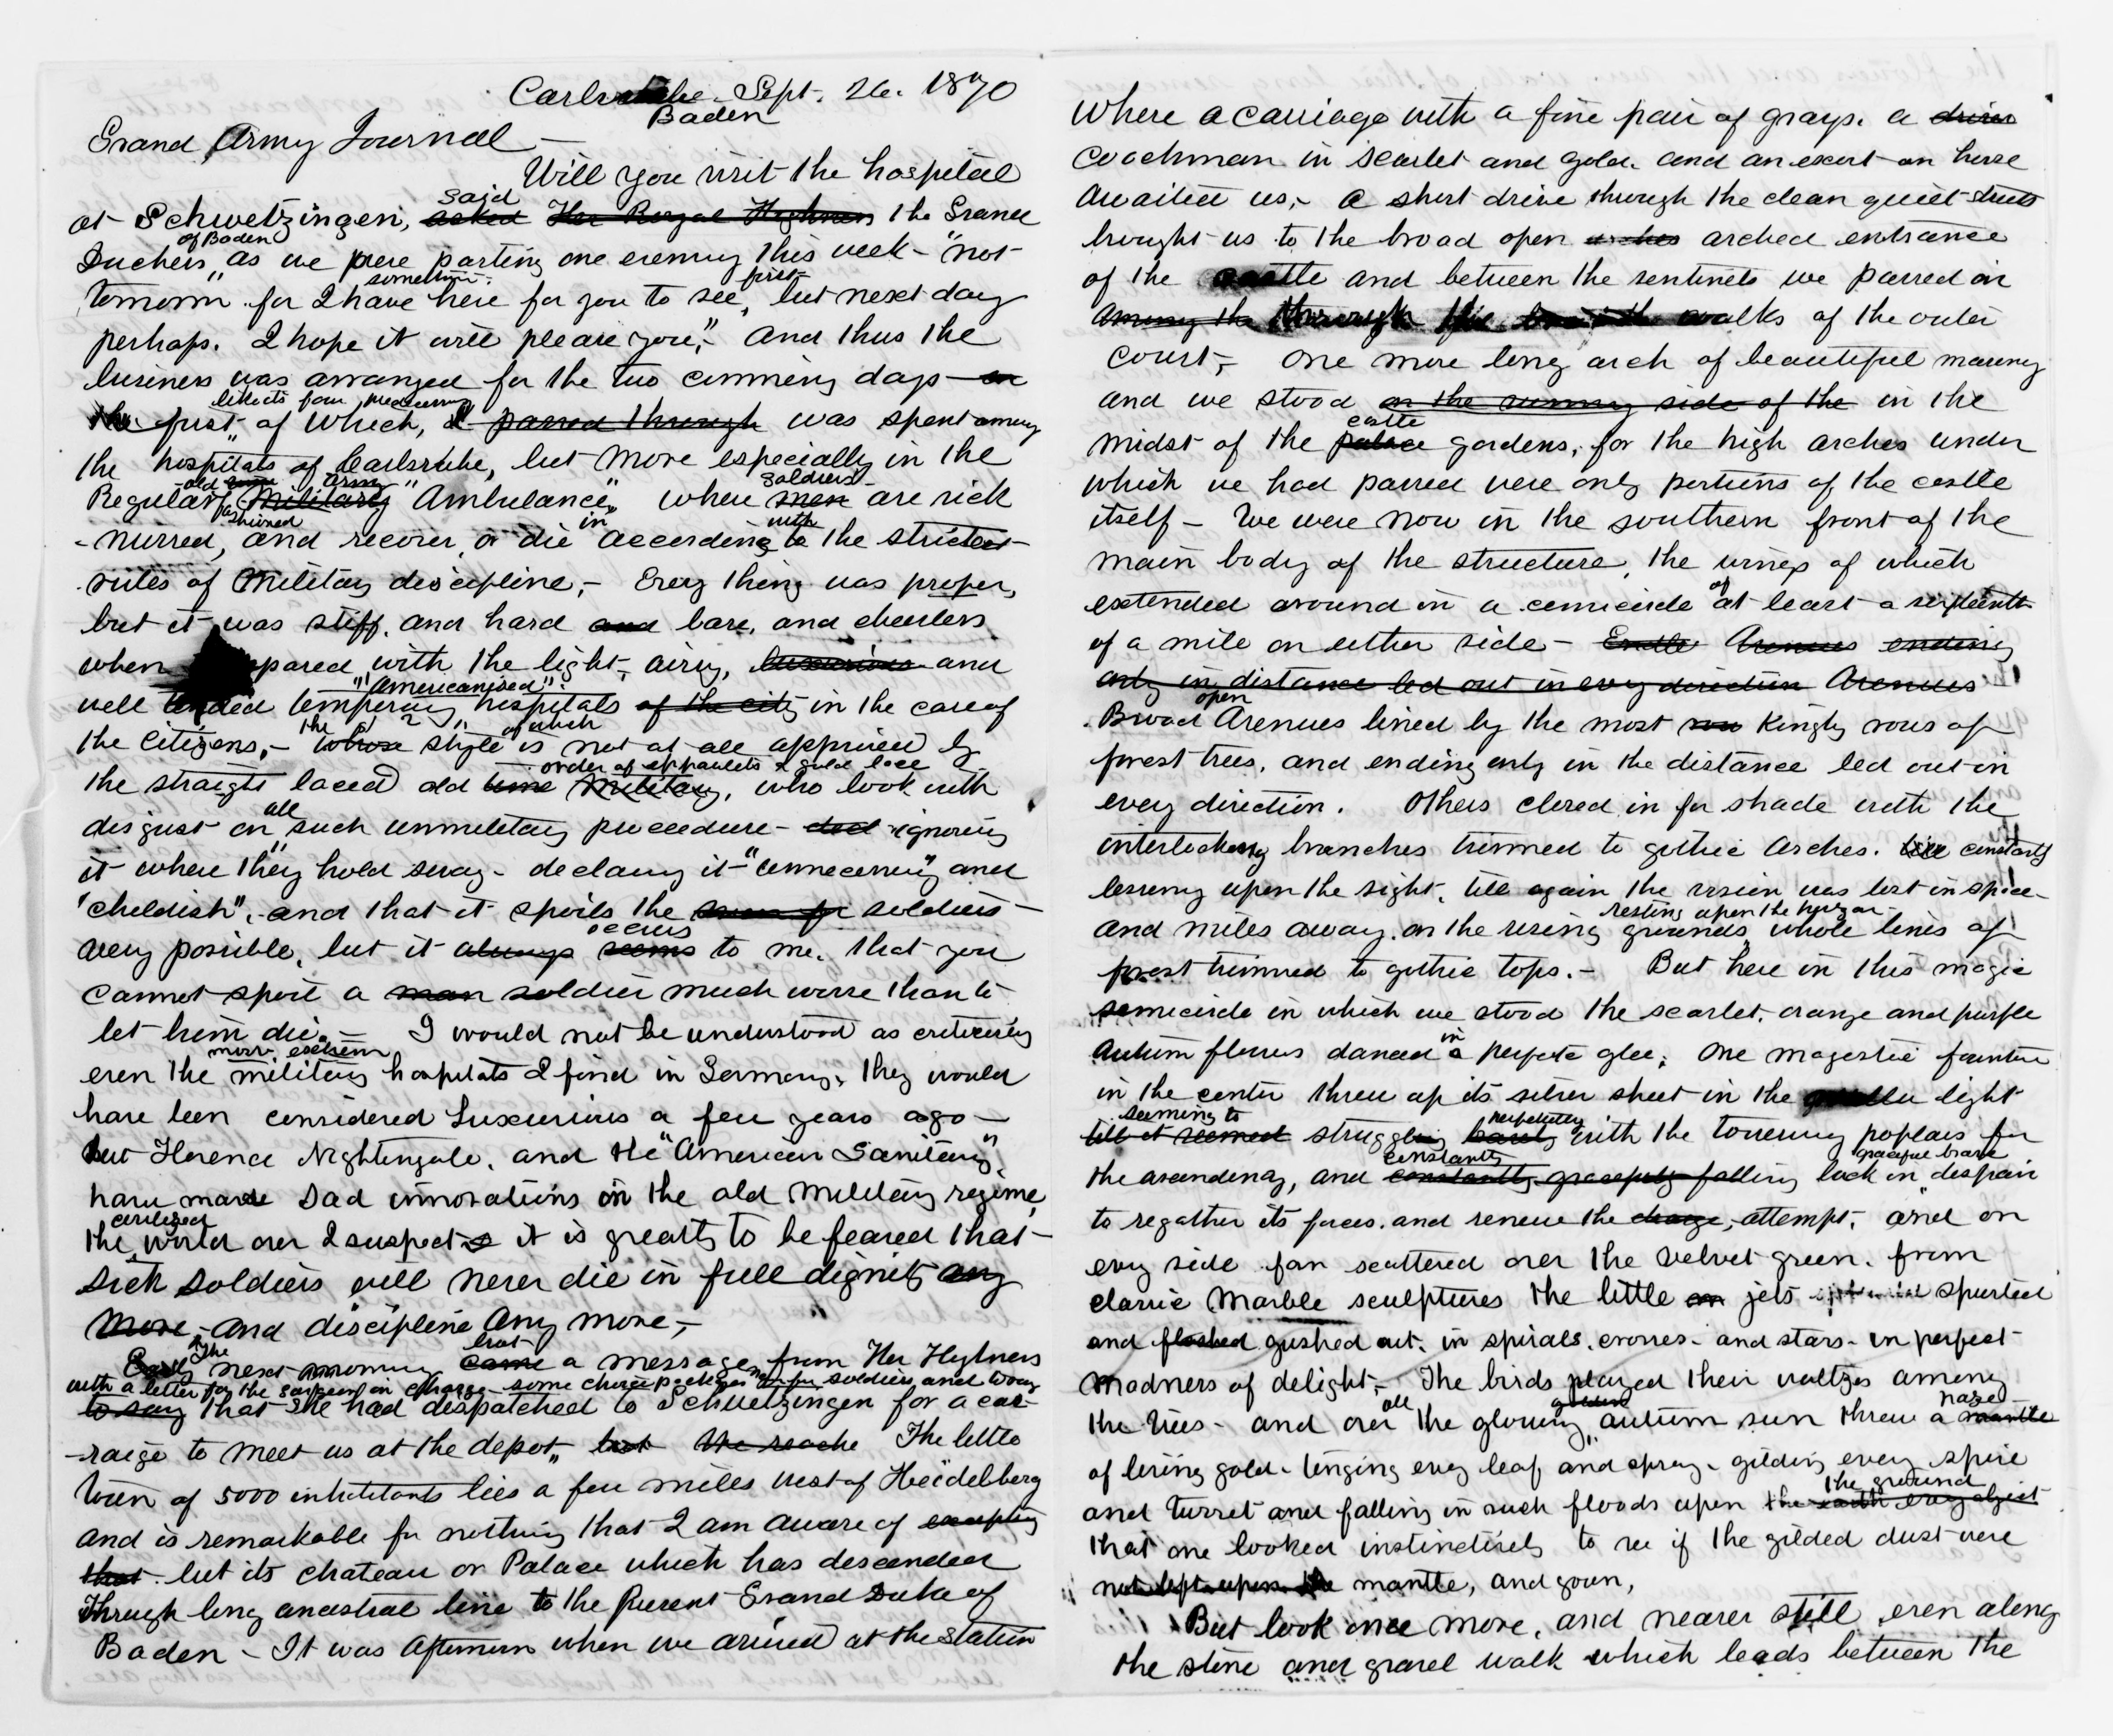 Carlsruhe Sept. 26. 1870
Baden
Grand Army Journal —
Will you visit the hospital
said
at Schwetzingen, asked Her Royal Highness the Grand
of Baden
Duchess, as we were parting one evening this week – "not
something first
tomorrow for I have here for you to see, but next day
perhaps. I hope it will please you," and thus the
business was arranged for the two comming days – on
the first of which, I passed through was spent among
the hospitals of Carlsruhe, but more especially in the
old army soldiers
Regular military "Ambulance", where men are sick
fashioned in with
– nursed, and recover, or die according to the strictest
rules of military discipline, – Every thing was proper,
but it was stiff, and hard and bare, and cheerless
when pared with the light, airy, luxurious and
"Americanised"
well tended temporary hospitals of the city in the care of
the of which
the citizens, – whose style is not at all approved by
order of eppaulets & gold lace
the straight laced old time military, who look with
all
disgust on such unmilitary proceedure – and ignoring
it where they hold sway – declaring it "unnecessary" and
"childish", and that it spoils the soldiers –
occurs
very possible, but it always seems to me, that you
cannot spoil a man soldier much worse than to
let him die. – I would not be understood as criticising
more
even the military hospitals I find in Germany, they would
have been considered Luxurious a few years ago –
but Florence Nightingale, and the "American Sanitary",
have made sad innovations in the old military regime,
civilized
the world over I suspect & it is greatly to be feared that
sick soldiers will never die in full dignity any
more, – and discipline any more, –
The brot
next morning came a message from Her Highness
with a letter for the surgeon in charge – some choice packages for soldiers, and word
to say that she had despatched to Schwetzingen for a car-
-raige to meet us at the depot, but We reache The little
town of 5000 inhabitants lies a few miles west of Heidelberg
and is remarkable for nothing that I am aware of excepting
that but its chateau or Palace which has descended
through long ancestral line to the present Grand Duke of
Baden – It was afternoon when we arrived at the station
where a carriage with a fine pair of grays, a driver
coachman in scarlet and gold, and an escort on horse
awaited us, – a short drive through the clean quiet streets
brought us to the broad open arches arched entrance
of the castle and between the sentinels we passed on
among the through the walks of the outer
court, – one more long arch of beautiful masonry
and we stood on the sunny side of the in the
castle
midst of the palace gardens, for the high arches under
which we had passed were only portions of the castle
itself – We were now in the southern front of the
main body of the structure, the wings of which
of
extended around in a cemicircle at least a sixteenth
of a mile on either side – Endle Avenues ending
only in distance led out in every direction Avenues
open
Broad Avenues lined by the most row Kingly rows of
forest trees, and ending only in the distance led out in
every direction. Others closed in for shade with the
interlocking branches trimmed to gothic arches. till constantly
lessening upon the sight, till again the vision was lost in space –
resting upon the
and miles away, on the rising grounds, whole lines of
forest trimmed to gothic tops. – But here in this magic
semicircle in which we stood the scarlet, orange and purple
in
Autum flowers danced a perfect glee, One magestic fountain
in the center threw up its silver sheet in the light
seeming to perpetually
till it seemed struggling barely with the towering poplars for
constantly graceful
the ascendency, and constantly gracefully falling back in despair
to regather its forces, and renew the charge, attempt, and on
every side far scattered over the velvet green, from
classic marble sculptures the little jets spurted
and flashed gushed out, in spirals, crosses – and stars – in perfect
madness of delight, – The birds played their waltzes among
all golden haze
the trees – and over the glowing autum sun threw a mantle
of living gold – tinging every leaf and spray – gilding every spire
the ground
and turret and falling in such floods upon the earth every object
that one looked instinctively to see if the gilded dust were
not left upon the mantle, and gown,
But look once more, and nearer still, even along
the stone and gravel walk which leads between the